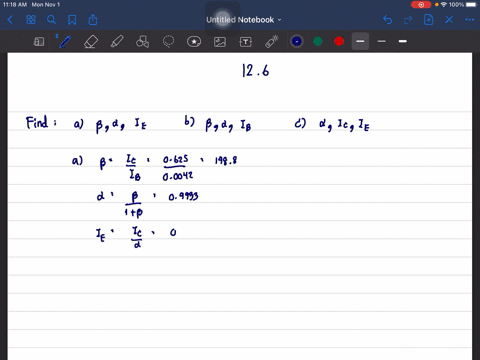 11:18 AM Mon Nov 1
100%
Untitled Notebook
12.6
Find: a) β, α, I_E b) β, α, I_B c) α, I_C, I_E
a) β = I_C / I_B = 0.625 / 0.0042 = 148.8
α = β / 1+β = 0.9933
I_E = I_C / α = 0